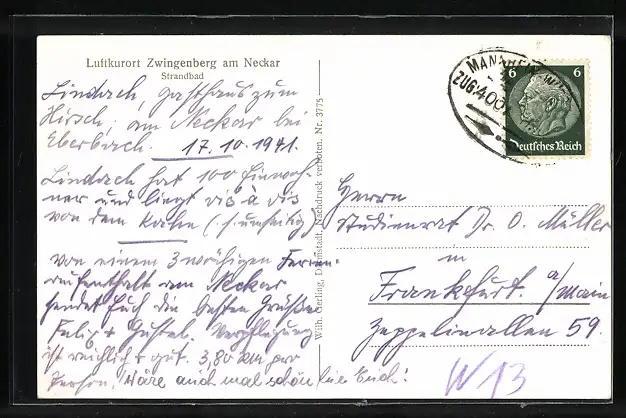 Luftkurort Zwingenberg am Neckar
Strandbad
Lindach, Gasthaus zum
Hirsch, am Neckar bei
Eberbach. 17.10.1941.
Lindach hat 100 Einwoh-
ner und liegt vis à vis
von dem (s. umseitig)
Von einem 3 wöchigen Ferien-
aufenthalt am Neckar
sendet Euch die besten Grüße
Felix + Gustel. Verpflegung
ist reichlich + gut. 3,80 RM pro
Person. Wäre auch mal schön für Euch!
Wilh. Gerling, Darmstadt. Nachdruck verboten. Nr. 3775
MANNHEIM
ZUG:400
6 6
Deutsches Reich
Herrn
Studienrat Dr. O. Müller
in
Frankfurt. a/Main
Zeppelinallee 59.
W 13